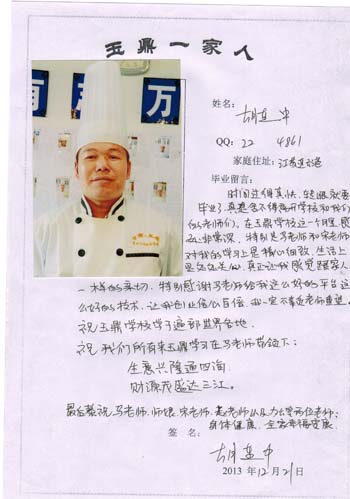 玉鼎一家人
有 声 万
姓名：胡连中
QQ：22 4861
家庭住址：江苏连云港
毕业留言：
时间过得真快，转眼就要
毕业了，真是舍不得离开学校和我们
的老师们，在玉鼎学校这一个月，感
觉非常深，特别是马老师和宋老师
对我的学习上是精心细致，生活上
一样的亲切，特别感谢马老师给我这么好的平台这
么好的技术，让我创业信心百倍，我一定不辜负老师重望。
祝玉鼎学校学习遍部世界各地
祝 我们所有来玉鼎学习在马老师带领下：
生意兴隆通四海
财源茂盛达三江。
最后敬祝马老师，师娘，宋老师，
身体健康，全家幸福安康
签名：胡连中
2013年12月21日